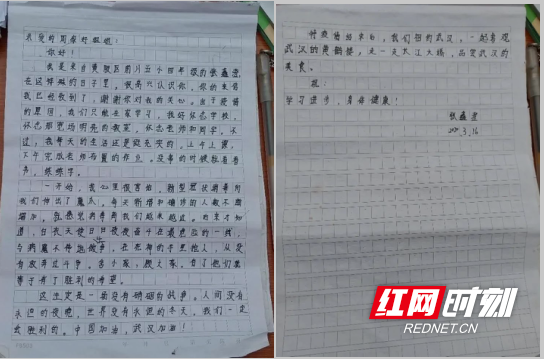 亲爱的周雅舒姐姐:
你好!
我是来自黄陂区前川五小四年级的张鑫
在这特殊的日子里,很高兴认识你,你的来信
我已经收到了,谢谢你对我的关心。由于疫情
的原因,我们只能在家学习,我好怀念学校,
怀念那宽敞明亮的教室,怀念老师和同学,不
过,我每天的生活还是挺充实的,上午上课,
下午完成老师布置的作业。没事的时候拉着
练练字。
一开始,我心里很害怕,新型冠状病毒向
我们伸出了魔爪,每天新增和确诊的人数不断
增加,病毒离我们越来越近。
道,白衣天使日日夜夜奋斗在最危险的一线,
与病魔不停地做争,在死神的手里抢人,从没
有放弃过斗争。舍小家,顾大家。有了他们就
等于有了胜利的希望。
这注定是一场没有硝烟的战争。人间没有
永恒的夜晚,世界没有永恒的冬天,我们一定
会胜利的。中国加油,武汉加油!
待疫情结束后,我们相约武汉,一起看观
武汉的黄鹤楼,走一走长江大桥,品尝武汉的
美食。
祝:
学习进步,身体健康!
张鑫
2020.3.16
红网时刻
REDNET.CN